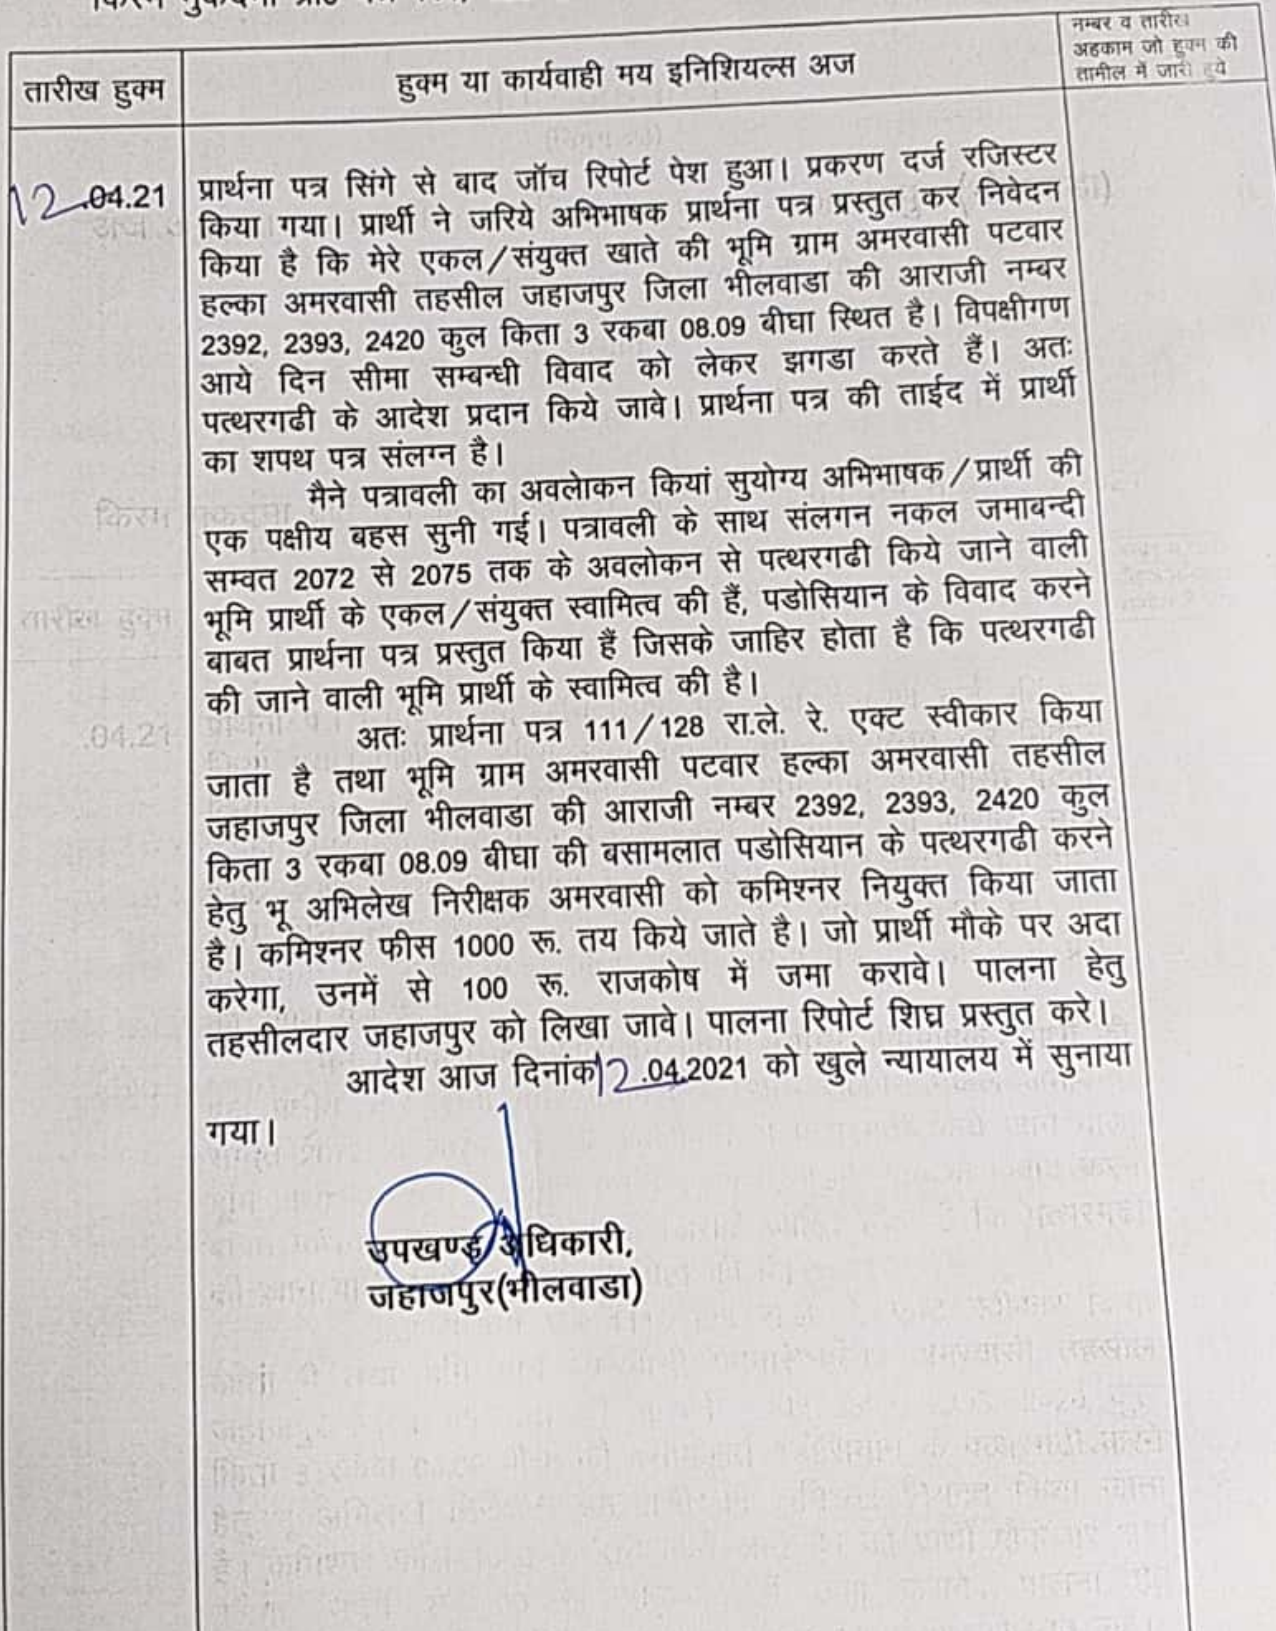 नम्बर व तारीख
अहकाम जो हुक्म की
तामील में जारी हुये
तारीख हुक्म
हुक्म या कार्यवाही मय इनिशियल्स अज
12.04.21
प्रार्थना पत्र सिंगे से बाद जॉच रिपोर्ट पेश हुआ। प्रकरण दर्ज रजिस्टर
किया गया। प्रार्थी ने जरिये अभिभाषक प्रार्थना पत्र प्रस्तुत कर निवेदन
किया है कि मेरे एकल/संयुक्त खाते की भूमि ग्राम अमरवासी पटवार
हल्का अमरवासी तहसील जहाजपुर जिला भीलवाडा की आराजी नम्बर
2392, 2393, 2420 कुल किता 3 रकबा 08.09 बीघा स्थित है। विपक्षीगण
आये दिन सीमा सम्बन्धी विवाद को लेकर झगडा करते हैं। अतः
पत्थरगढी के आदेश प्रदान किये जावे। प्रार्थना पत्र की ताईद में प्रार्थी
का शपथ पत्र संलग्न है।
मैने पत्रावली का अवलेाकन कियां सुयोग्य अभिभाषक/प्रार्थी की
एक पक्षीय बहस सुनी गई। पत्रावली के साथ संलगन नकल जमाबन्दी
सम्वत 2072 से 2075 तक के अवलोकन से पत्थरगढी किये जाने वाली
भूमि प्रार्थी के एकल/संयुक्त स्वामित्व की हैं, पडोसियान के विवाद करने
बाबत प्रार्थना पत्र प्रस्तुत किया हैं जिसके जाहिर होता है कि पत्थरगढी
की जाने वाली भूमि प्रार्थी के स्वामित्व की है।
अतः प्रार्थना पत्र 111/128 रा.ले. रे. एक्ट स्वीकार किया
जाता है तथा भूमि ग्राम अमरवासी पटवार हल्का अमरवासी तहसील
जहाजपुर जिला भीलवाडा की आराजी नम्बर 2392, 2393, 2420 कुल
किता 3 रकबा 08.09 बीघा की बसामलात पडोसियान के पत्थरगढी करने
हेतु भू अभिलेख निरीक्षक अमरवासी को कमिश्नर नियुक्त किया जाता
है। कमिश्नर फीस 1000 रू. तय किये जाते है। जो प्रार्थी मौके पर अदा
करेगा, उनमें से 100 रू. राजकोष में जमा करावे। पालना हेतु
तहसीलदार जहाजपुर को लिखा जावे। पालना रिपोर्ट शिघ्र प्रस्तुत करे।
आदेश आज दिनांक 12.04.2021 को खुले न्यायालय में सुनाया
गया।
उपखण्ड अधिकारी,
जहाजपुर(भीलवाडा)